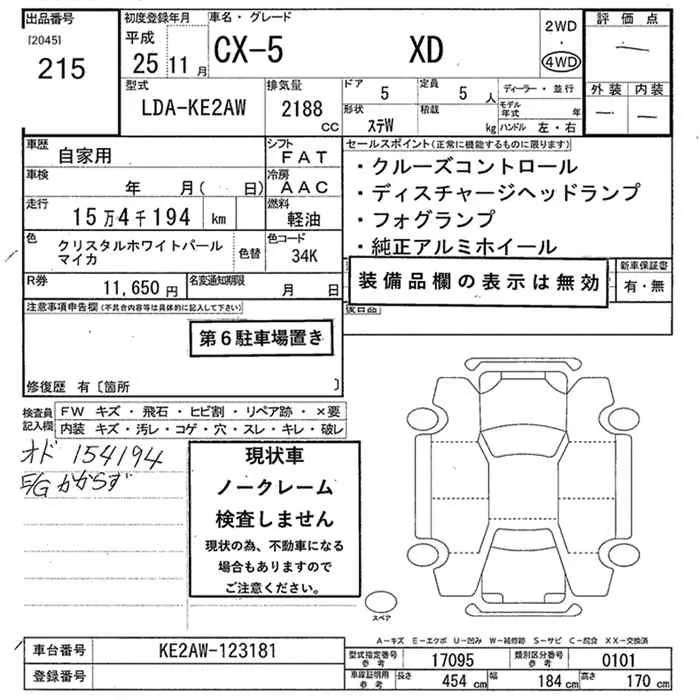 出品番号 初度登録年月 車名・グレード 2WD 評価点
[2045] 平成 ・
215 25 11月 CX-5 XD 4WD
型式 排気量 ドア 定員 ディーラー・並行 外装 内装
LDA-KE2AW 2188 CC 5 5人 モデル年式 年
形状 ステW 積載 kg ハンドル 左・右
車歴 自家用 シフト FAT セールスポイント(正常に機能するものに限ります)
車検 年 月( 日) 冷房 AAC ・クルーズコントロール
走行 15万4千194 km 燃料 軽油 ・ディスチャージヘッドランプ
・フォグランプ
色 クリスタルホワイトパールマイカ 色替 色コード 34K ・純正アルミホイール
R券 11,650円 名変通知期限 月 日 装備品欄の表示は無効 新車保証書
有・無
注意事項申告欄(不具合内容等は具体的に記入して下さい) 後日品
第6駐車場置き
修復歴 有〔箇所 〕
検査員記入欄 FW キズ・飛石・ヒビ割・リペア跡・×要
内装 キズ・汚レ・コゲ・穴・スレ・キレ・破レ
オド 154194
E/Gかからず
現状車
ノークレーム
検査しません
現状の為、不動車になる
場合もありますので
ご注意ください。
スペア
A-キズ E-エクボ U-凹み W-補修跡 S-サビ C-腐食 XX-交換済
車台番号 KE2AW-123181 型式指定番号 参考 17095 類別区分番号 参考 0101
登録番号 車線証明用 参考 長さ 454cm 幅 184cm 高さ 170cm